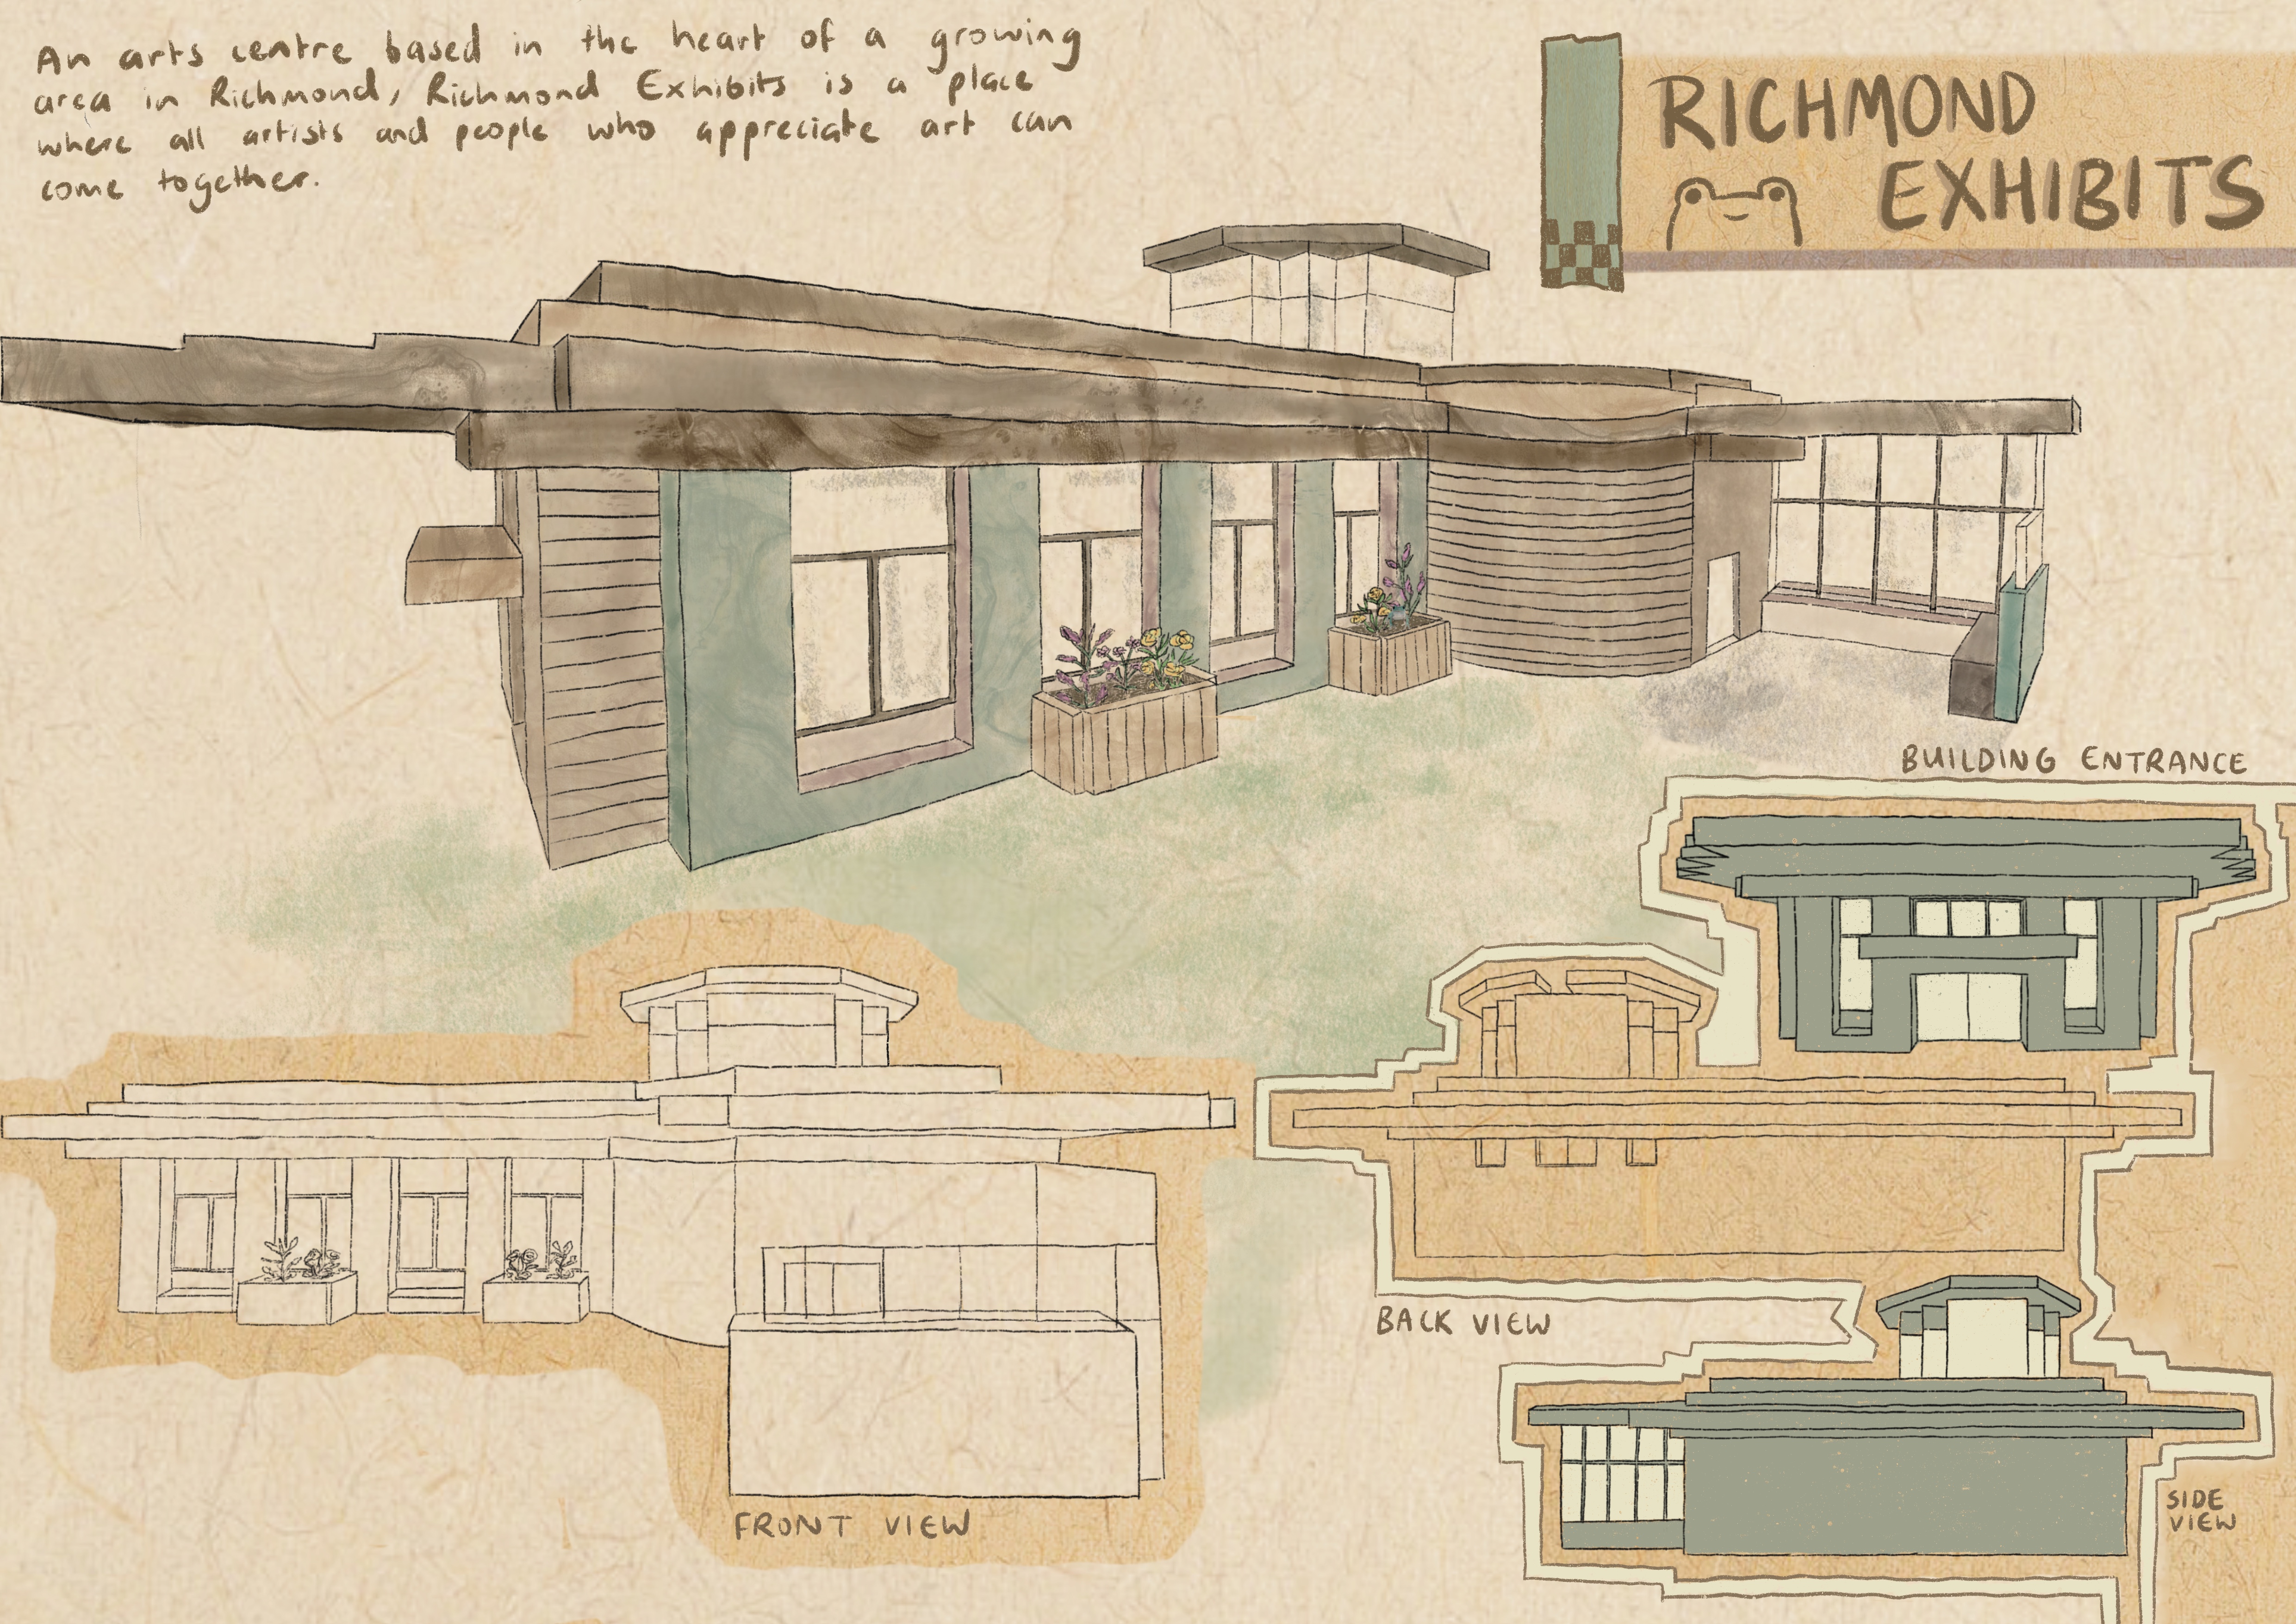 An arts centre based in the heart of a growing
area in Richmond, Richmond Exhibits is a place
where all artists and people who appreciate art can
come together.
RICHMOND
EXHIBITS
BUILDING ENTRANCE
BACK VIEW
FRONT VIEW
SIDE
VIEW